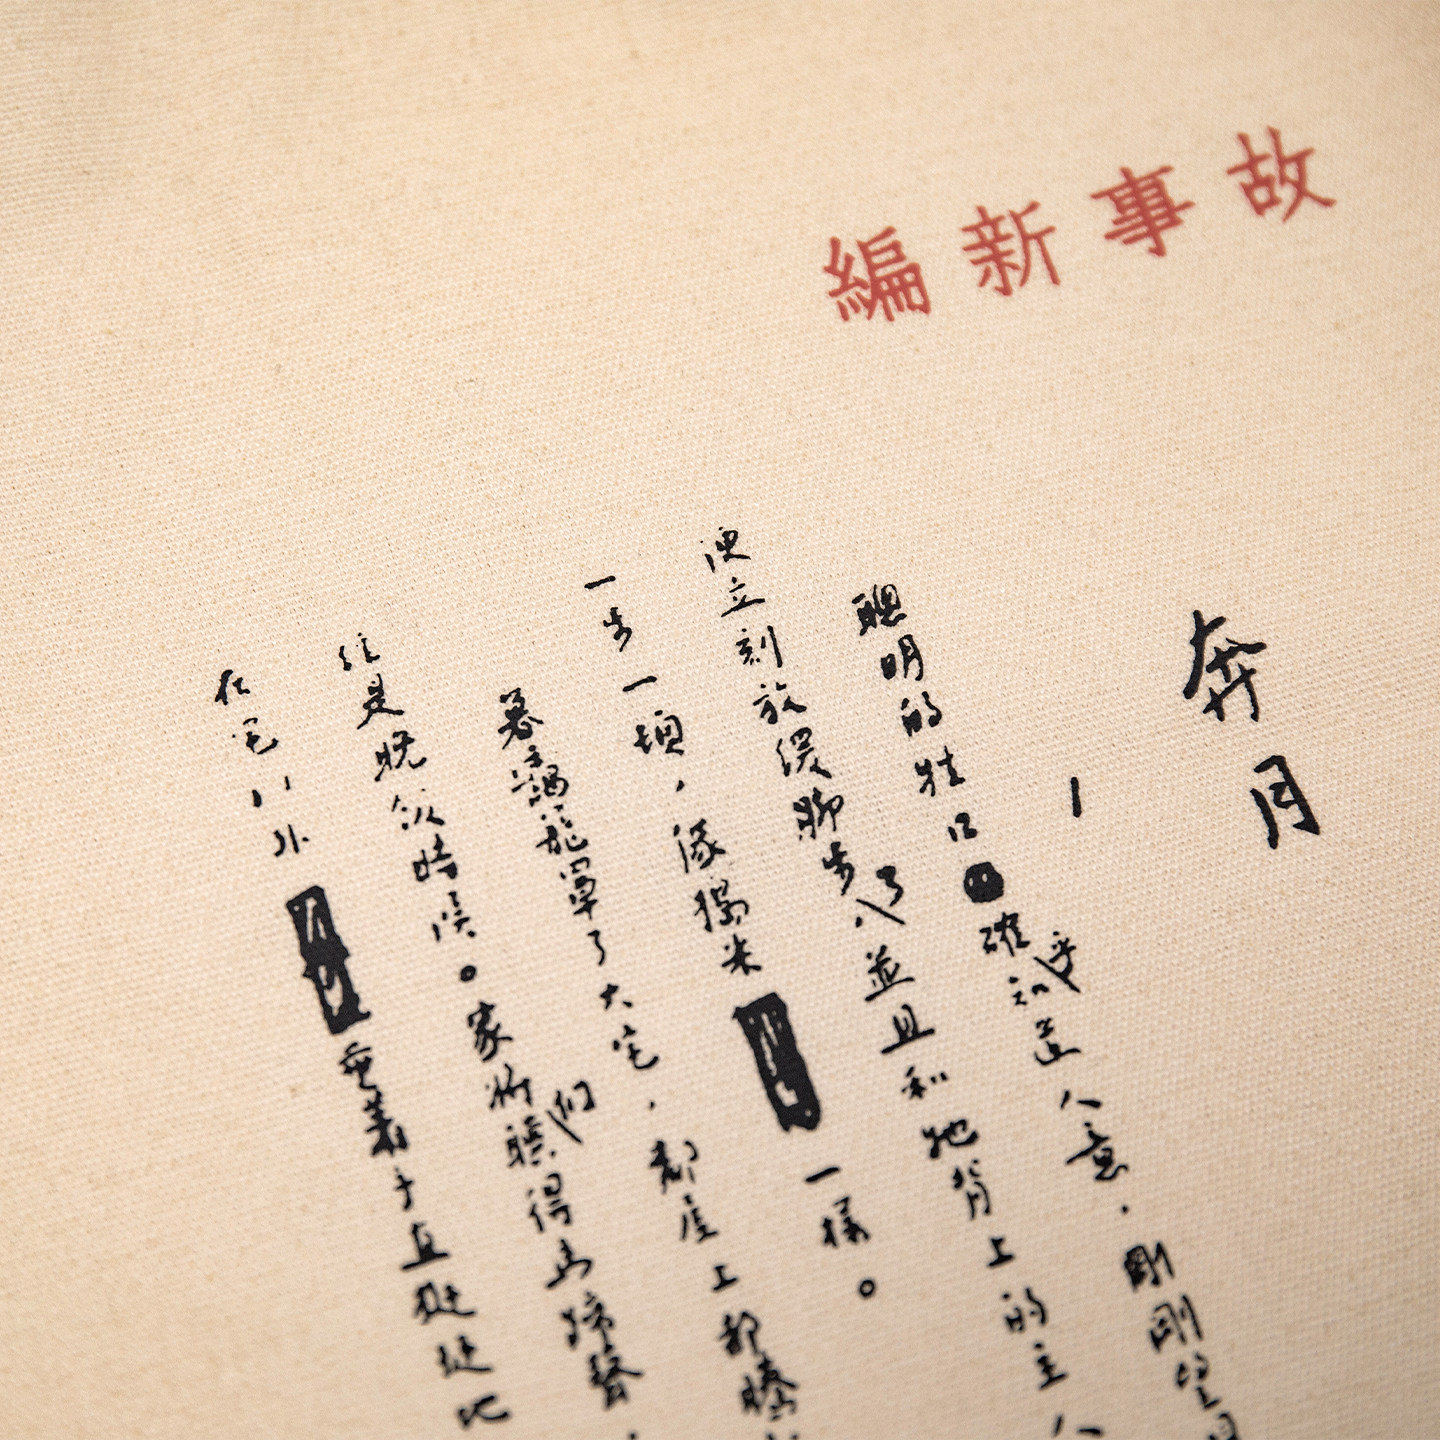 故事新編
奔月
一
聰明的牲口確乎知道人意，剛剛望見
便立刻放緩腳步了，並且和牠背上的主人
一步一頓，像搗米一樣。
暮靄籠罩了大宅，鄰屋上都騰
經是晚飯時候。家將們聽得馬蹄聲，
在宅門外垂着手直挺挺地